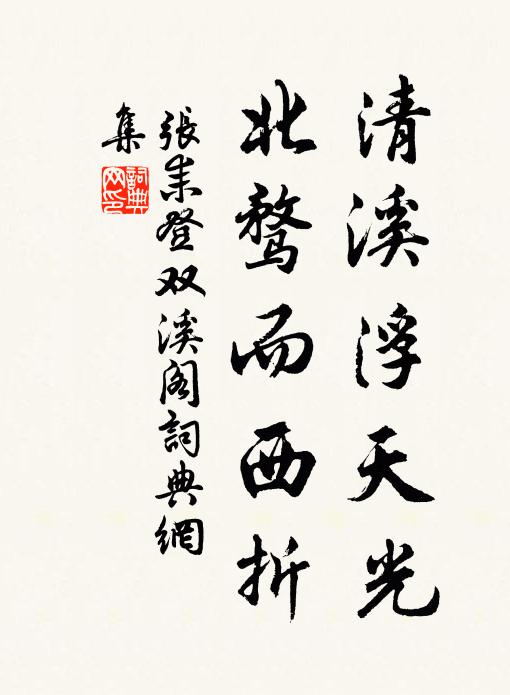 清溪浮天光
北鹜而西折
張耒登双溪阁詞典網
集
詞典
网印